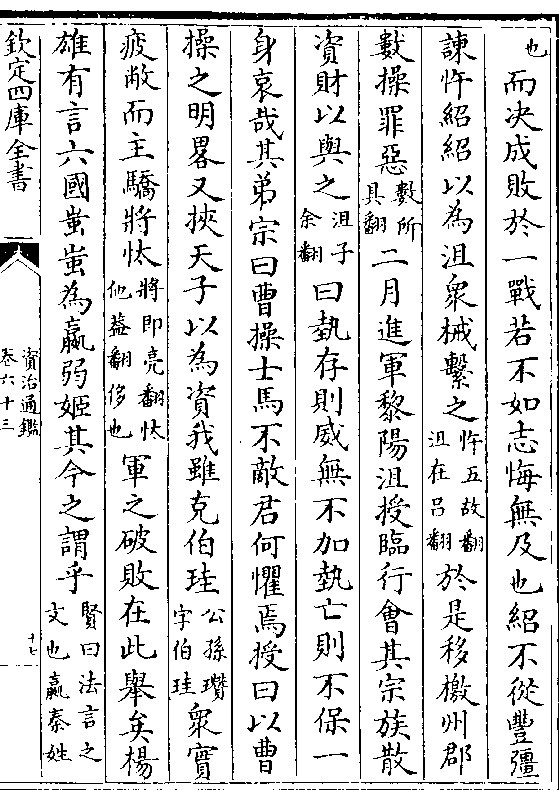 也而决成敗於一戰若不如志悔無及也紹不從豐彊
諫忤紹紹以為沮衆械繫之忤五故翻沮在呂翻於是移檄州郡
數操罪惡數所具翻二月進軍黎陽沮授臨行會其宗族散
資財以與之沮子余翻曰埶存則威無不加埶亡則不保一
身哀哉其弟宗曰曹操士馬不敵君何懼焉授曰以曹
操之明畧又挾天子以為資我雖克伯珪公孫瓚字伯珪衆實
疲敝而主驕將忲將即亮翻忲他葢翻侈也軍之破敗在此舉矣楊
雄有言六國蚩蚩為嬴弱姬其今之謂乎賢曰法言之文也嬴秦姓
欽定四庫全書
資治通鑑
卷六十三
十七